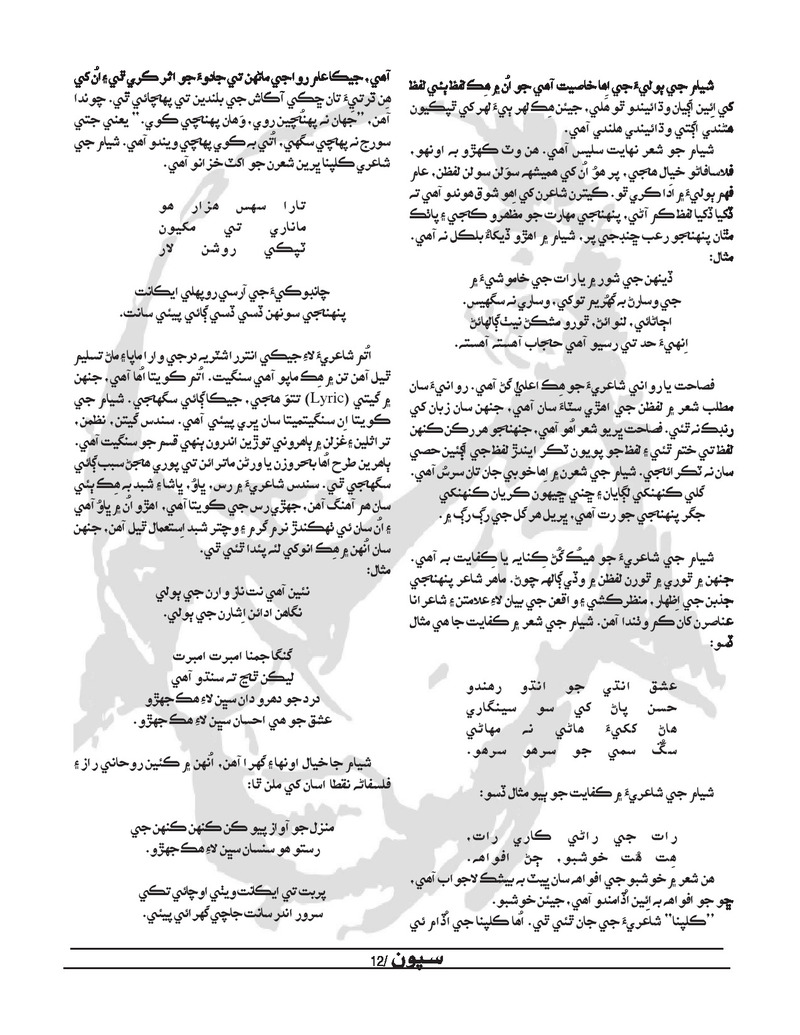 شيام جي ٻوليءَ جي اِها خاصيت آهي جو اُن ۾ هِڪ لفظ ٻئي لفظ
کي اِئين اڳيان وڌائيندو ٿو هَلي، جيئن هِڪ لهر ٻيءَ لهر کي ٿپڪيون
هڻندي اڳتي وڌائيندي هلندي آهي.
شيام جو شعر نهايت سليس آهي. هن وٽ کڻي ڪهڙو به اونهو،
فلاسافاڻو خيال هجي، پر هُو اُن کي هميشهه سوَلن سولن لفظن، عام
فهم ٻوليءَ ۾ اَدا ڪري ٿو. ڪيترن شاعرن کي اِهو شوق هوندو آهي ته
ڏکيا ڏکيا لفظ ڪم آڻي، پنهنجي مهارت جو مظهرو ڪجي ۽ پاٺڪ
مٿان پنهنجو رعب ڇنڊجي پر، شيام ۾ اهڙو ڏيکاءُ بلڪل نه آهي.
مثال:
ڏينهن جي شور ۾ يا رات جي خاموشيءَ ۾
جي وسارڻ به گهُريم توکي، وساري نه سگهيس.
اڄاڻائي، لنوائڻ، ٿورو مشڪڻ نيٺ ڳالهائڻ
اِنهيءَ حد تي رسيو آهي حجاب آهسته آهسته.
فصاحت يا رواني شاعريءَ جو هِڪ اعليٰ گڻ آهي. روانيءَ سان
مطلب شعر ۾ لفظن جي اهڙي سٽاءَ سان آهي، جنهن سان زبان کي
رنڊڪ نه ٿئي. فصاحت ڀريو شعر اُهو آهي، جنهنجو هر رڪن ڪنهن
لفظ تي ختم ٿئي ۽ لفظ جو پويون ٽڪر ايندڙ لفظ جي اڳئين حصي
سان نه ٽڪرائجي. شيام جي شعرن ۾ اها خوبي جان تان سرسُ آهي.
گلي ڪنهنکي لڳايان ۽ چنبي ڇيهون ڪريان ڪنهنکي
جگر پنهنجي جو رت آهي، ڀريل هر گل جي رڳ رڳ ۾.
شيام جي شاعريءَ جو هيڪُ گُڻ ڪِنايه يا ڪِفايت به آهي.
جنهن ۾ ٿوري ۾ ٿورن لفظن ۾ وڏي ڳالهه چوڻ. ماهر شاعر پنهنجي
جذبن جي اِظهار، منظرڪشي ۽ واقعن جي بيان لاءِ علامتن ۽ شاعراڻا
عناصرن کان ڪم وٺندا آهن. شيام جي شعر ۾ ڪفايت جا هي مثال
ڏسو:
عشق انڌي جو انڌو رهندو
حسن پاڻ کي سو سينگاري
هاڻ ککيءَ هاڻي نه مهاڻي
سڳُ سمي جو سرهو سرهو.
شيام جي شاعريءَ ۾ ڪفايت جو ٻيو مثال ڏسو:
رات جي راڻي ڪاري رات،
هِت هُت خوشبو، ڄڻ افواهه.
هن شعر ۾ خوشبو جي افواهه سان ڀيٽ به بيشڪ لاجواب آهي،
ڇو جو افواهه به اِئين اُڏامندو آهي، جيئن خوشبو.
”ڪلپنا“ شاعريءَ جي جان ٿئي ٿي. اُها ڪلپنا جي اُڏام ئي
آهي، جيڪا عام رواجي ماڻهن تي جادوءَ جو اثر ڪري ٿي ۽ اُن کي
هِن ڌرتيءَ تان ڇڪي آڪاش جي بلندين تي پهچائي ٿي. چوندا
آهن، ”جَهان نه پهنُچين روي، وَهان پهنچي ڪوي.“ يعني جتي
سورج نه پهچي سگهي، اُتي به ڪوي پهچي ويندو آهي. شيام جي
شاعري ڪلپنا ڀرين شعرن جو اکٽ خزانو آهي.
تارا سهس هزار هو
ماناري تي مکيون
ٽپڪي روشن لار
چانڊوڪيءَ جي آرسي روپهلي ايڪانت
پنهنجي سونهن ڏسي ڏسي ڳائي پيئي سانت.
اُتم شاعريءَ لاءِ جيڪي انتر راشٽريه درجي وارا ماپا ۽ ماڻ تسليم
ٿيل آهن تن ۾ هِڪ ماپو آهي سنگيت. اُتم ڪويتا اُها آهي، جنهن
۾ گيتي (Lyric) تتوَ هجي، جيڪا ڳائي سگهجي. شيام جي
ڪويتا اِن سنگيتميتا سان ڀري پيئي آهي. سندس گيتن، نظمن،
ترائلين ۽ غزلن ۾ ٻاهروني توڙين اندرون ٻنهي قسم جو سنگيت آهي.
ٻاهرين طرح اُها بحروزن يا ورڻن ماترائن تي پوري هجڻ سبب ڳائي
سگهجي ٿي. سندس شاعريءَ ۾ رس، ڀاوُ، ڀاشا ۽ شبد به هِڪ ٻئي
سان هم آهنگ آهن، جهڙي رس جي ڪويتا آهي، اهڙو اُن ۾ ڀاوُ آهي
۽ اُن سان ئي ٺهڪندڙ نرم گرم ۽ وچتر شبد اِستعمال ٿيل آهن، جنهن
سان اُنهن ۾ هِڪ انوکي لئه پئدا ٿئي ٿي.
مثال:
نئين آهي نت ناز وارن جي ٻولي
نگاهن ادائن اِشارن جي ٻولي.
گنگا جمنا امبرت امبرت
ليڪن ٿڃ ته سنڌو آهي
درد جو دهرو دان سڀن لاءِ هڪ جهڙو
عشق جو هي احسان سڀن لاءِ هڪ جهڙو.
شيام جا خيال اونها ۽ گهرا آهن، اُنهن ۾ ڪئين روحاني راز ۽
فلسفاڻه نقطا اسان کي ملن ٿا:
منزل جو آواز پيو ڪن ڪنهن ڪنهن جي
رستو هو سنسان سڀن لاءِ هڪ جهڙو.
پربت تي ايڪانت ويٺي اوچائي تڪي
سرور اندر سانت جاچي گهرائي پيئي.
سپون /12